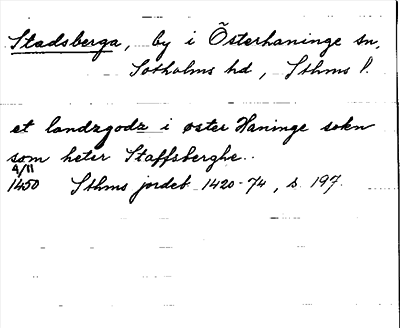 Stadsberga, by i Österhaninge sn,
Sotholms hd, Sthms l.
et landzgodz i øster Haninge sokn
som heter Staffsberghe..
4/11
1450 Sthms jordeb 1420-74, s 197.